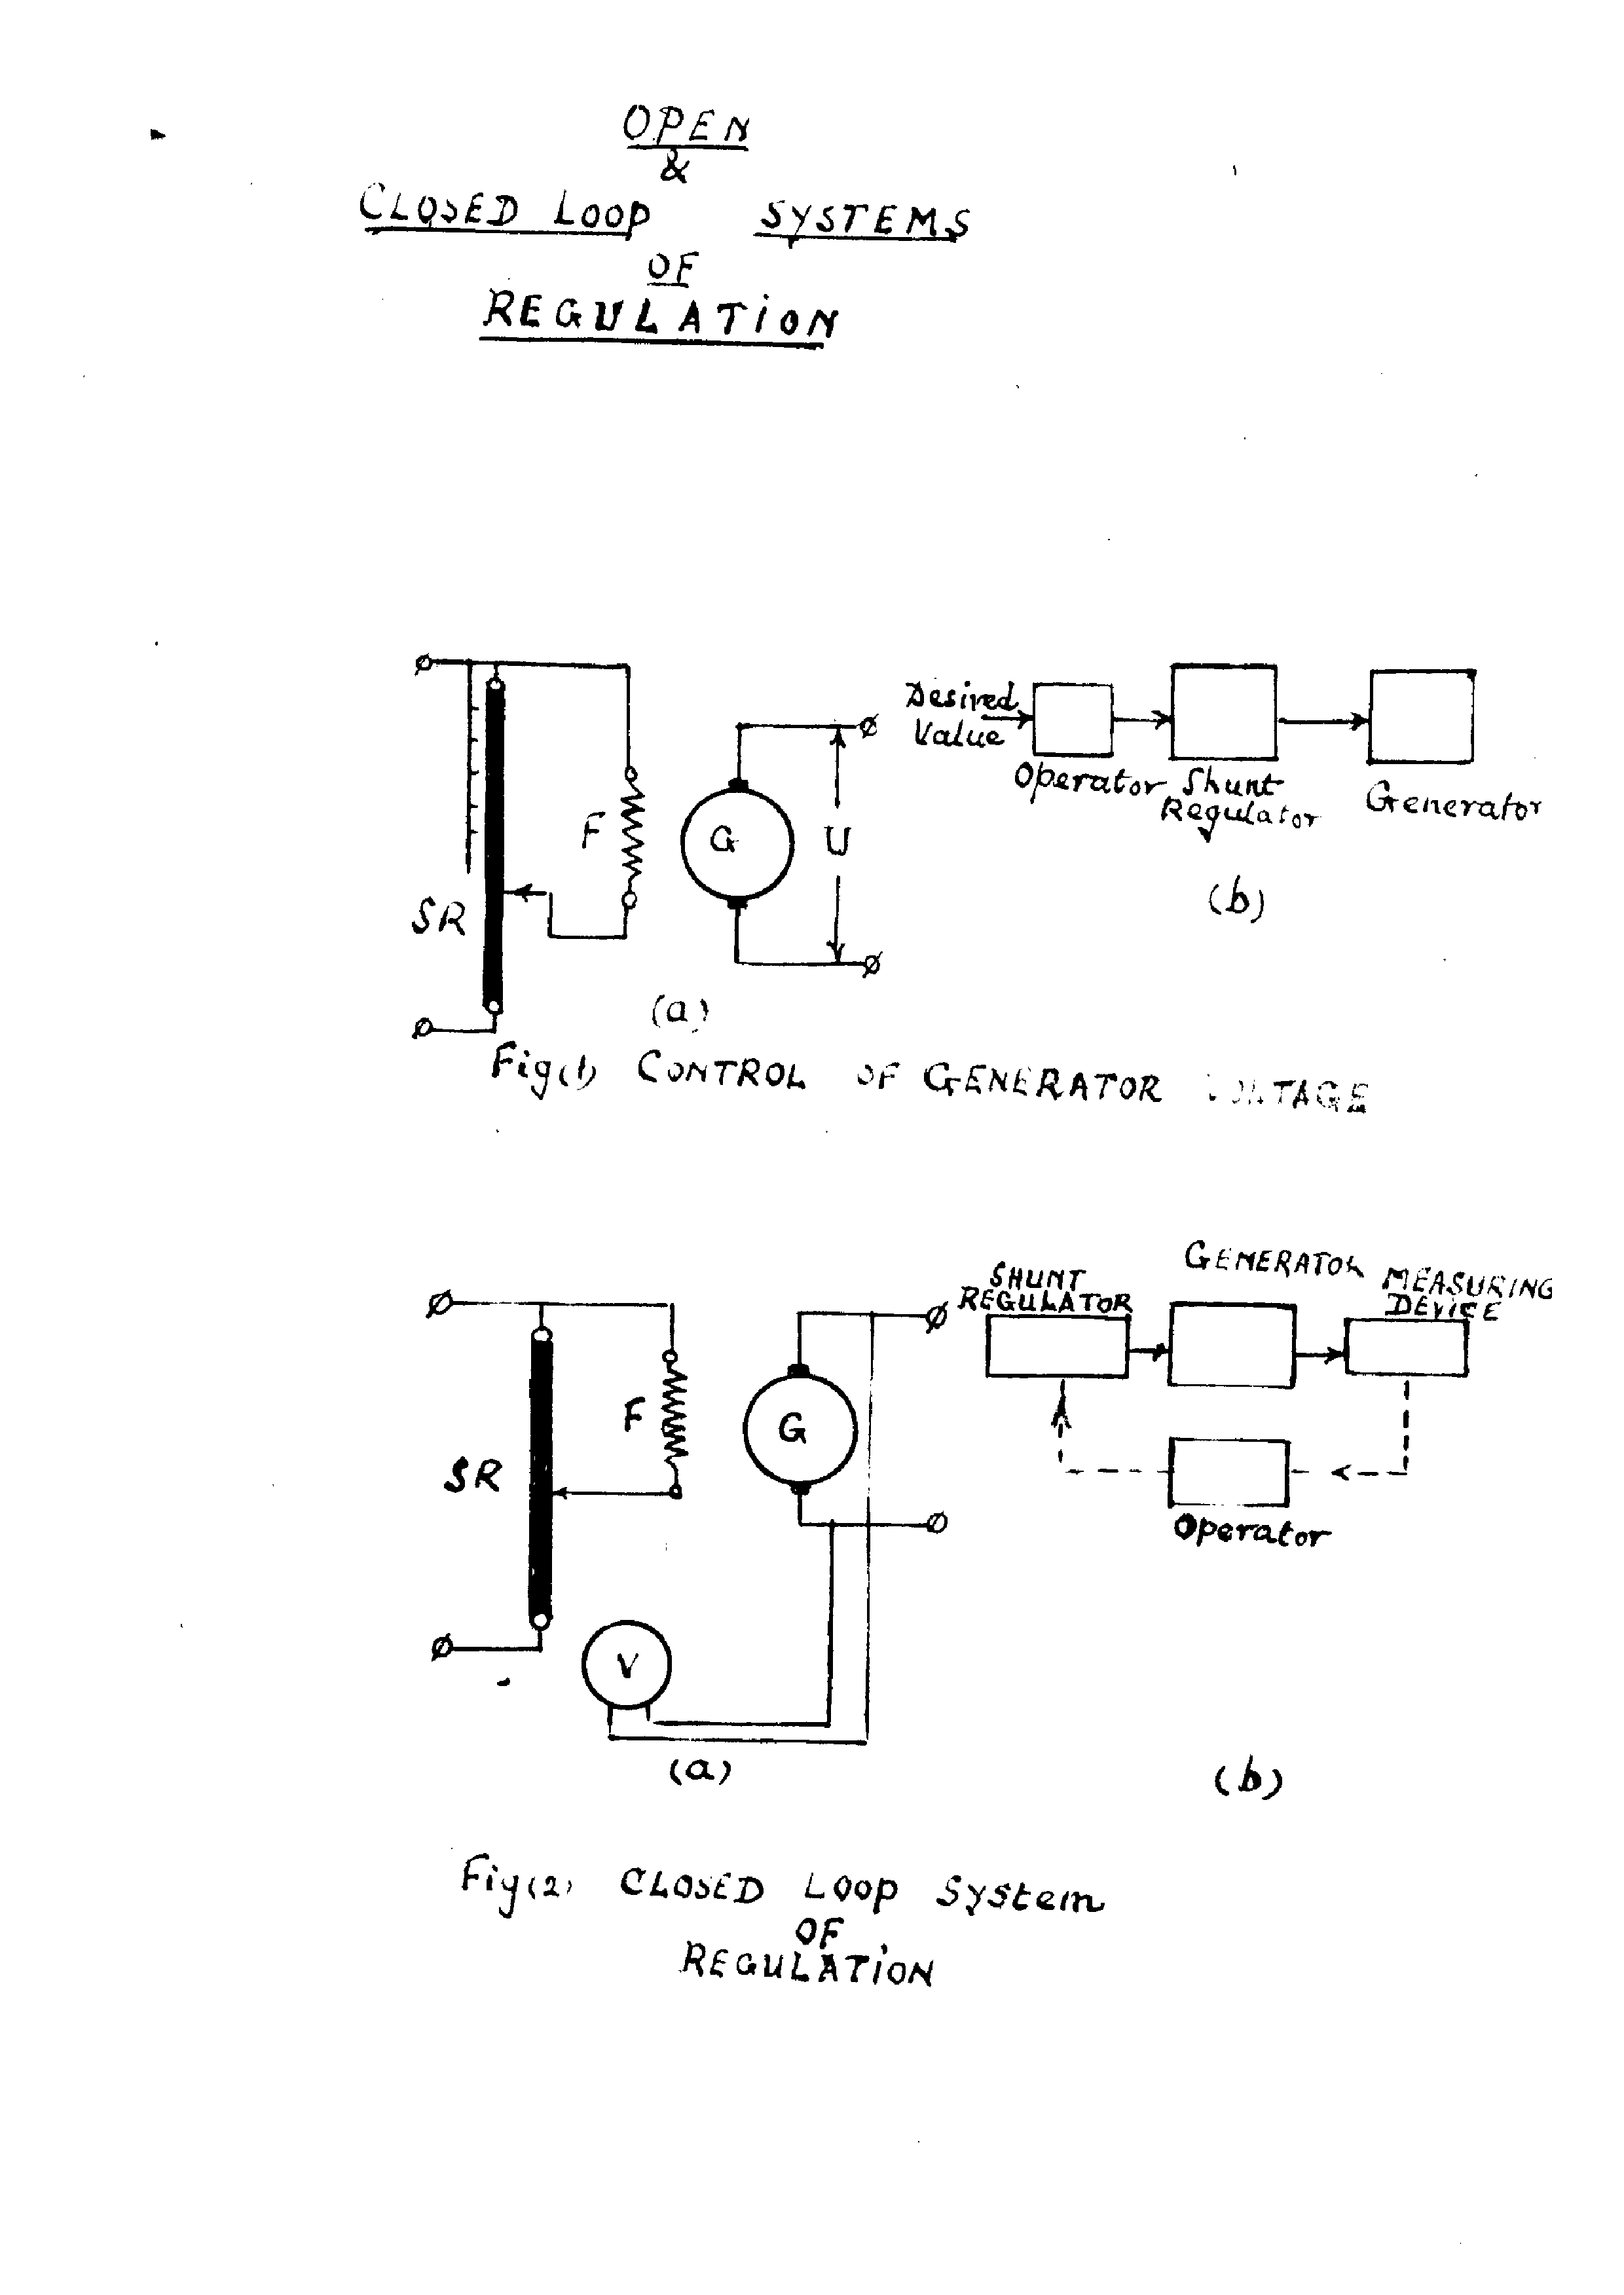 OPEN
&
CLOSED LOOP SYSTEMS
OF
REGULATION
Desired
Value
Operator Shunt
Regulator
Generator
F
G
U
SR
(b)
(a)
Fig(1) CONTROL OF GENERATOR VOLTAGE
SHUNT
REGULATOR
GENERATOR
MEASURING
DEVICE
F
G
SR
Operator
V
(a)
(b)
Fig(2) CLOSED LOOP System
OF
REGULATION